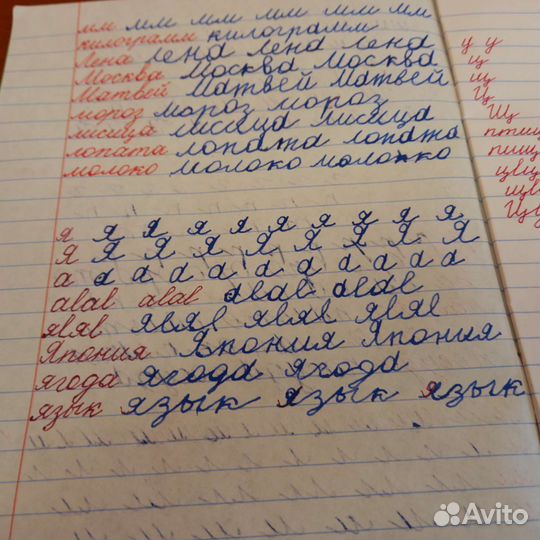 мм мм мм мм мм мм
килограмм килограмм
Лена Лена Лена Лена
Москва Москва Москва
Матвей Матвей Матвей
мороз мороз мороз
лисица лисица лисица
лопата лопата лопата
молоко молоко молоко
я я я я я я я я я я
Я Я Я Я Я Я Я Я Я
а а а а а а а а а а
авав авав авав авав
явяв явяв явяв явяв
Япония Япония Япония
ягода ягода ягода
язык язык язык язык
у у
ц
щ
Ц
Щ
Avito